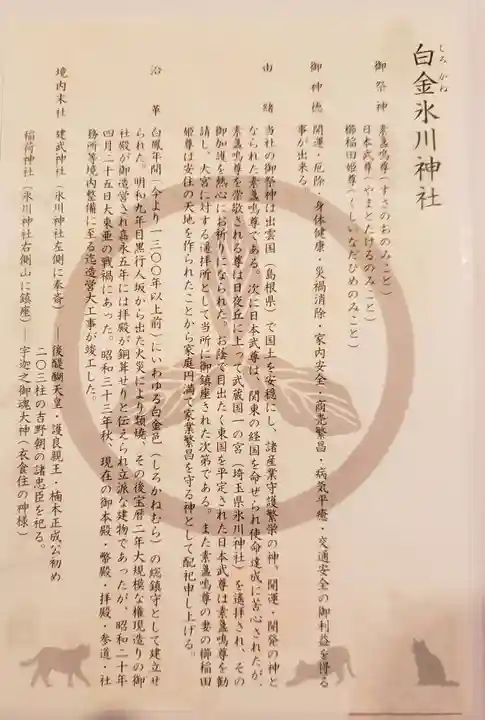 しろかね
白金氷川神社
御祭神　素盞嗚尊（すさのおのみこと）
日本武尊（やまとたけるのみこと）
櫛稲田姫尊（くしいなだひめのみこと）
御神徳　開運・厄除・身体健康・災禍消除・家内安全・商売繁昌・病気平癒・交通安全の御利益を得る
事が出来る。
由緒　当社の御祭神は出雲国（島根県）で国土を安穏にし、諸産業守護繁栄の神、開運・開発の神と
なられた素盞嗚尊である。次に日本武尊は、関東の経国を命ぜられ使命達成に苦心されたが、
素盞嗚尊を崇敬される尊は日夜丘に上って武蔵国一の宮（埼玉県氷川神社）を遙拝され、その
御加護を熱心にお祈りになられた。お陰で目出たく東国を平定された日本武尊は素盞嗚尊を勧
請し、大宮に対する遥拝所として当所に御鎮座された次第である。また素盞嗚尊の妻の櫛稲田
姫尊は安住の天地を作られたことから家庭円満で家業繁昌を守る神として配祀申し上げる。
沿革　白鳳年間（今より一三〇〇年以上前）にいわゆる白金邑（しろかねむら）の総鎮守として建立せ
られた。明和九年目黒行人坂から出た火災により類焼、その後宝暦二年大規模な権現造りの御
社殿が御造営され嘉永五年には拝殿が銅葺せりと伝えられ立派な建物であったが、昭和二十年
四月二十五日大東亜の戦禍にあった。昭和三十三年秋、現在の御本殿・幣殿・拝殿・参道・社
務所等境内整備に至る迄造営大工事が竣工した。
境内末社　建武神社（氷川神社左側に奉斎）―後醍醐天皇・護良親王・楠木正成公初め
二〇三柱の吉野朝の諸忠臣を祀る。
稲荷神社（氷川神社右側山に鎮座）―宇迦之御魂大神（衣食住の神様）